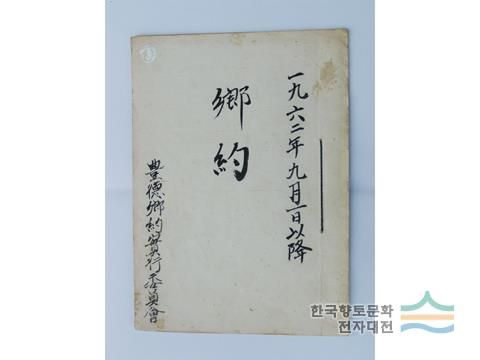 一九六二年九月一日以降
鄕約
豊德鄕約實行委員會
한국향토문화
전자대전